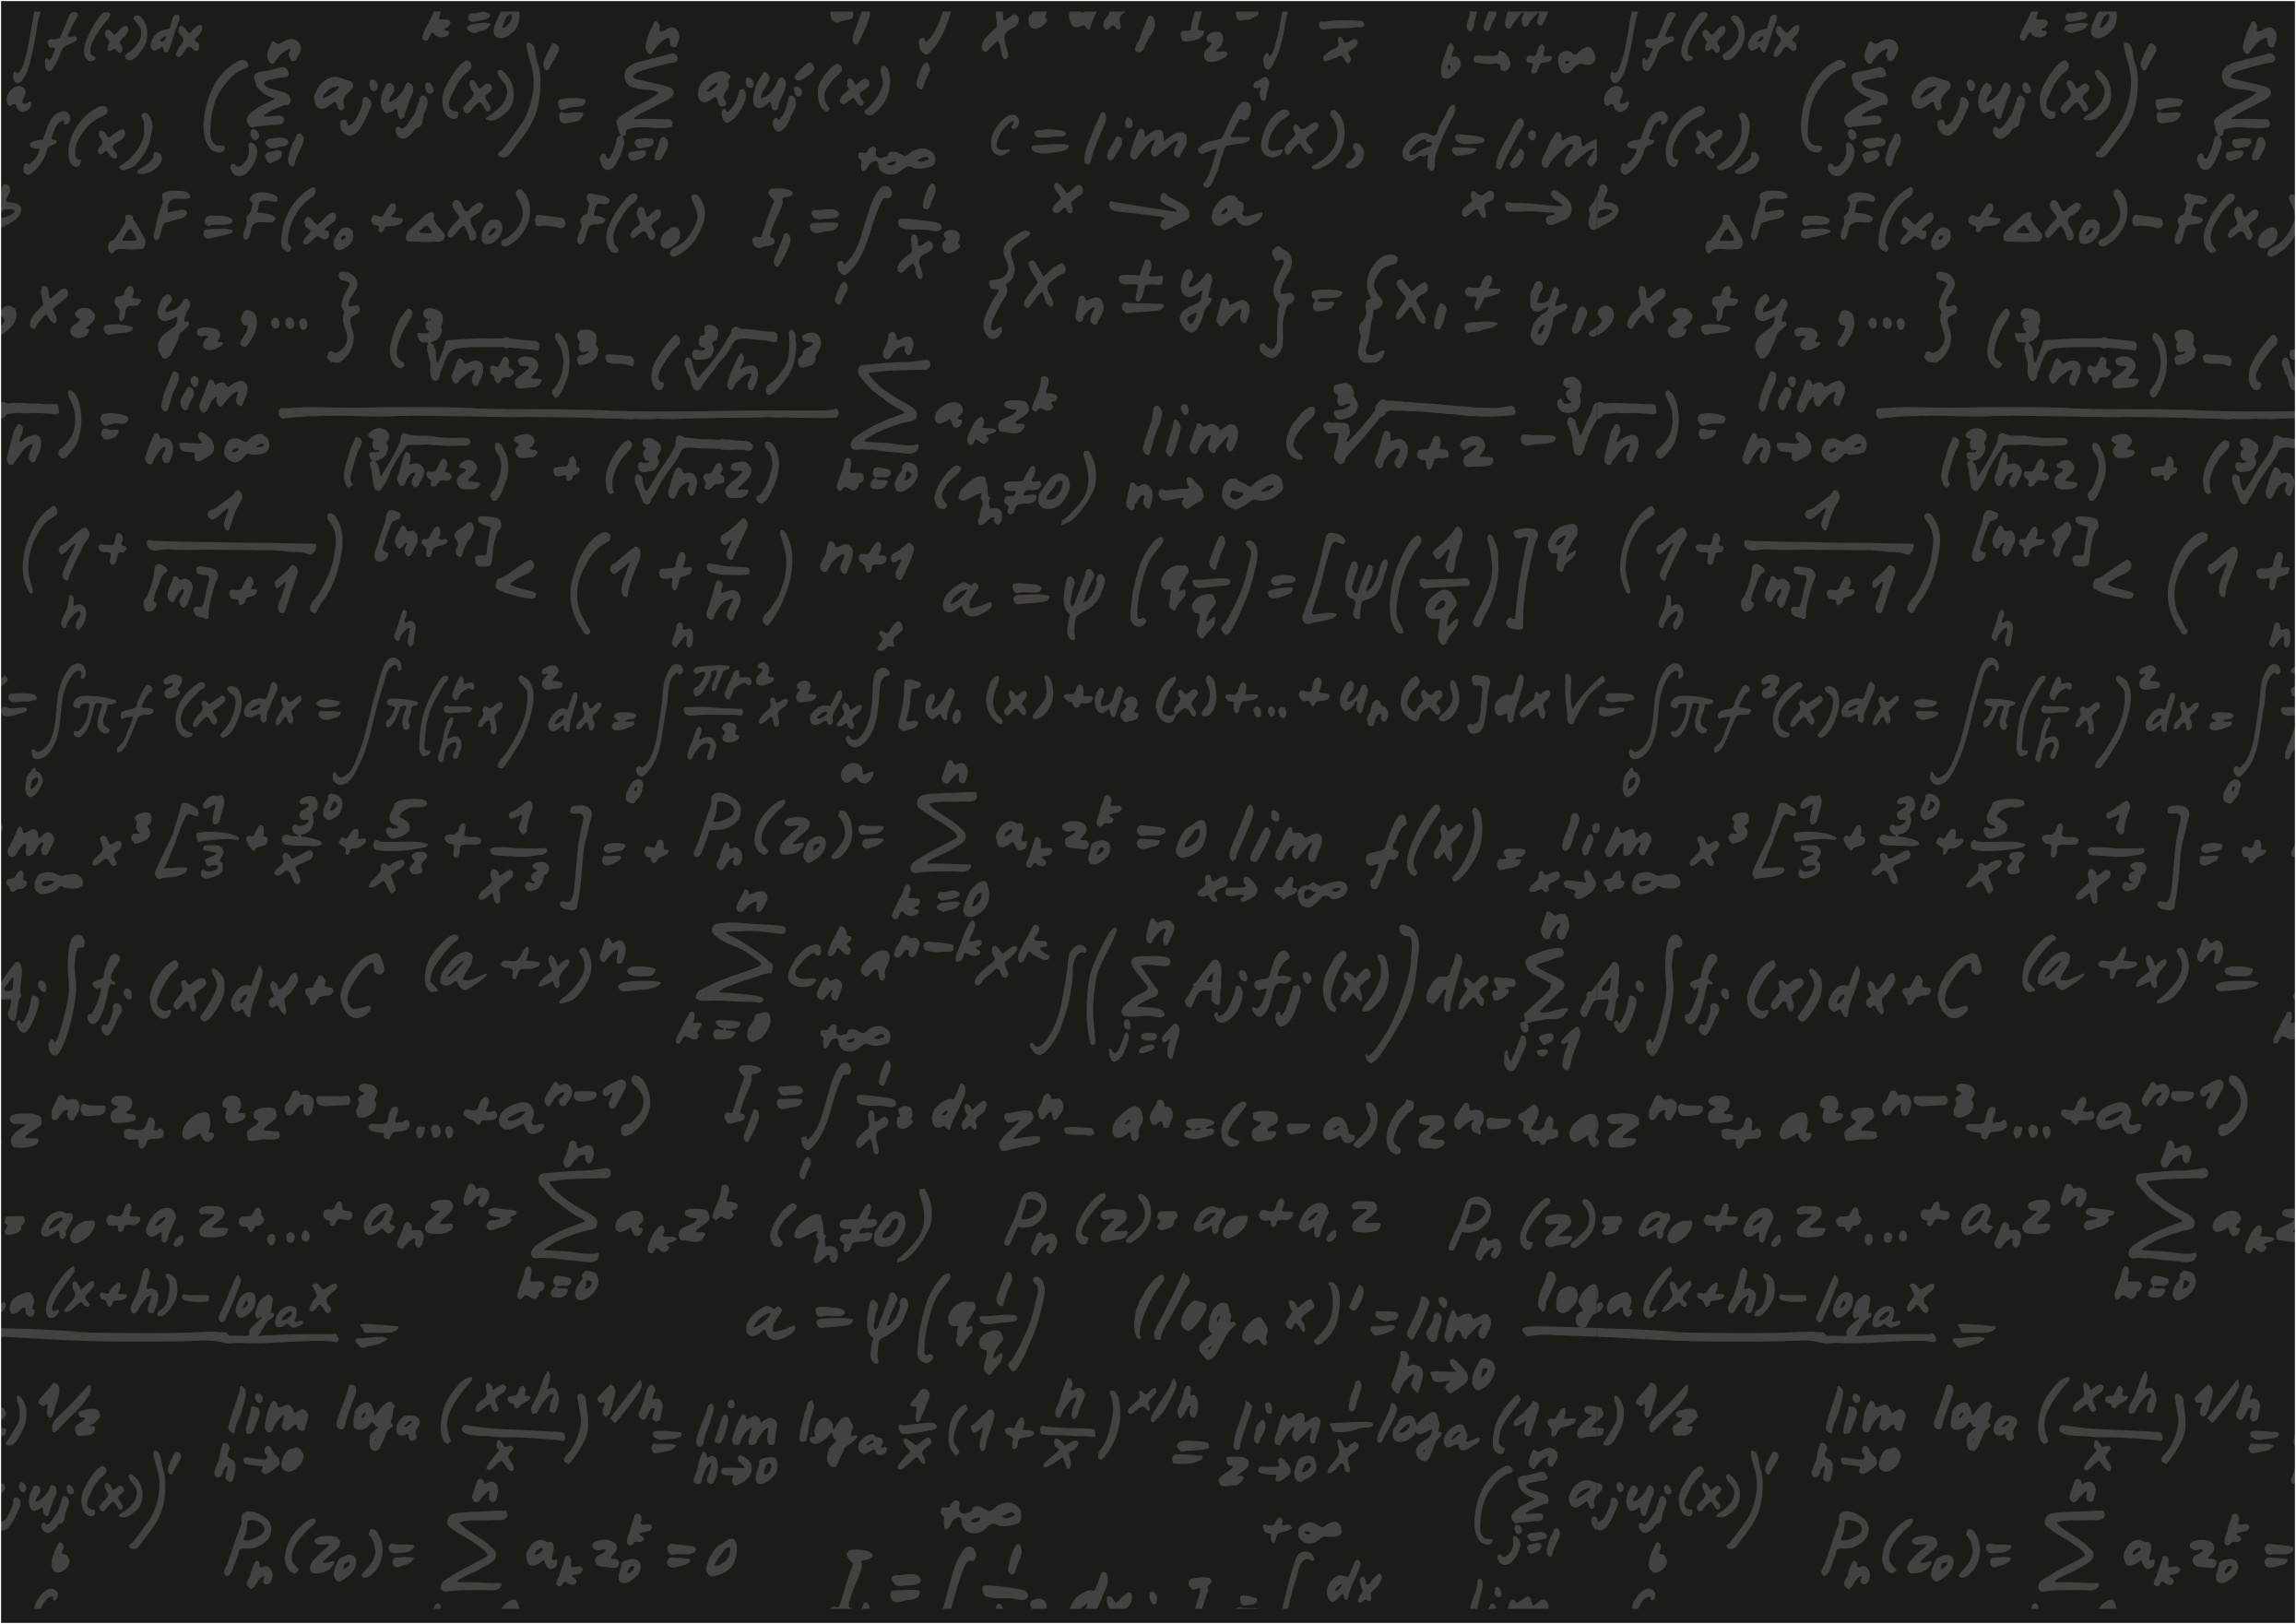 ∫f(x)dx k=0 b→+∞ ∫f(x)dx k=0
f(x), (∑ⁿⱼ₌₁ aⱼyⱼ(x))' = ∑ⁿⱼ₌₁ aⱼyⱼ'(x) c=lim f(x), d=lim f(x), (∑ⁿⱼ₌₁ aⱼyⱼ(x))' = ∑ⁿⱼ₌₁
x→a x→b
ΔF=F(x₀+Δx₀)-F(x₀) I=∫₁^{+∞} 1/x³ ΔF=F(x₀+Δx₀)-F(x₀
x₂±y₂,...} {xₙ±yₙ}={x₁±y₁, x₂±y₂,...}
n)=lim n→∞ ((∛n+2)³-(∛n)³)/((∛n+2)²+(∛n+2) ∑ⁿₖ₌₀ aₖzᵏ (aₙ≠0) lim n→∞ (∛n+2-∛n)=lim n→∞ (∛n+2)³-( / (∛n+2)²+(∛n
(1+1/[n]+1)^[n+1] < (1+1/n)^n+1 a=ψ(q 1/q)=[ψ(1/q)]^q (1+1/[n]+1)^[n+1] < (1+
=∫₀ʰ πf²(x)dx=∫ʰ π(r/h x)²dx=∫₀ʰ πr²/h² x²dx ∫ₐˣ[u₁(x)+u₂(x)+...+uₙ(x)]dx V=∫₀ʰ πf²(x)dx=∫ʰ π(r/h x)²dx=∫₀ʰ
m +∞ x³[1/3+30/x+5/x²+1/x³]=+ Pₙ(z₀)=∑ⁿₖ₌₀ aₖz₀ᵏ=0 lim x→+∞ f(x)=lim x→+∞ x³[1/3+30/x+5/x²+1/x³]=+
Aⱼ∫fⱼ(x)dx+C (a+x)ⁿ=∑ⁿₖ₌₀ Cₙᵏaⁿ⁻ᵏxᵏ ∫(∑ⁿⱼ₌₁ Aⱼfⱼ(x))dx=∑ⁿⱼ₌₁ Aⱼ∫fⱼ(x)dx+C (a+x)ⁿ=
zⁿ⁻²+a²zⁿ⁻³+...+aⁿ⁻¹) I=∫₁^{+∞} 1/x³ dx zⁿ-aⁿ=(z-a)(zⁿ⁻¹+azⁿ⁻²+a²zⁿ⁻³+...+aⁿ⁻¹)
=a₀+a₁z+...+aₙzⁿ=∑ⁿₖ₌₀ aₖzᵏ (aₙ≠0) Pₙ(z)=a₀+a₁z Pₙ(z)=a₀+a₁z+...+aₙzⁿ=∑ⁿₖ₌₀ aₖz
a(x+h)-logₐx = a=ψ(q 1/q) (logₐx)'=lim h→0 logₐ(x+h)-logₐx =
)^1/z lim h→0 logₐ((x+h)/x)^1/h=lim h→0 logₐ 1/x (1+h/x)^x/h=lim z→0 1/x logₐ(1+z)^1/z lim h→0 logₐ((x+h)/x)^1/h=
ⱼyⱼ(x))' (∑ⁿⱼ₌₁ aⱼyⱼ(x))'
b Pₙ(z₀)=∑ⁿ aₖz₀ᵏ=0 +∞ +∞ b Pₙ(z₀)=∑ⁿ aₖz₀ᵏ=
I=∫ dx